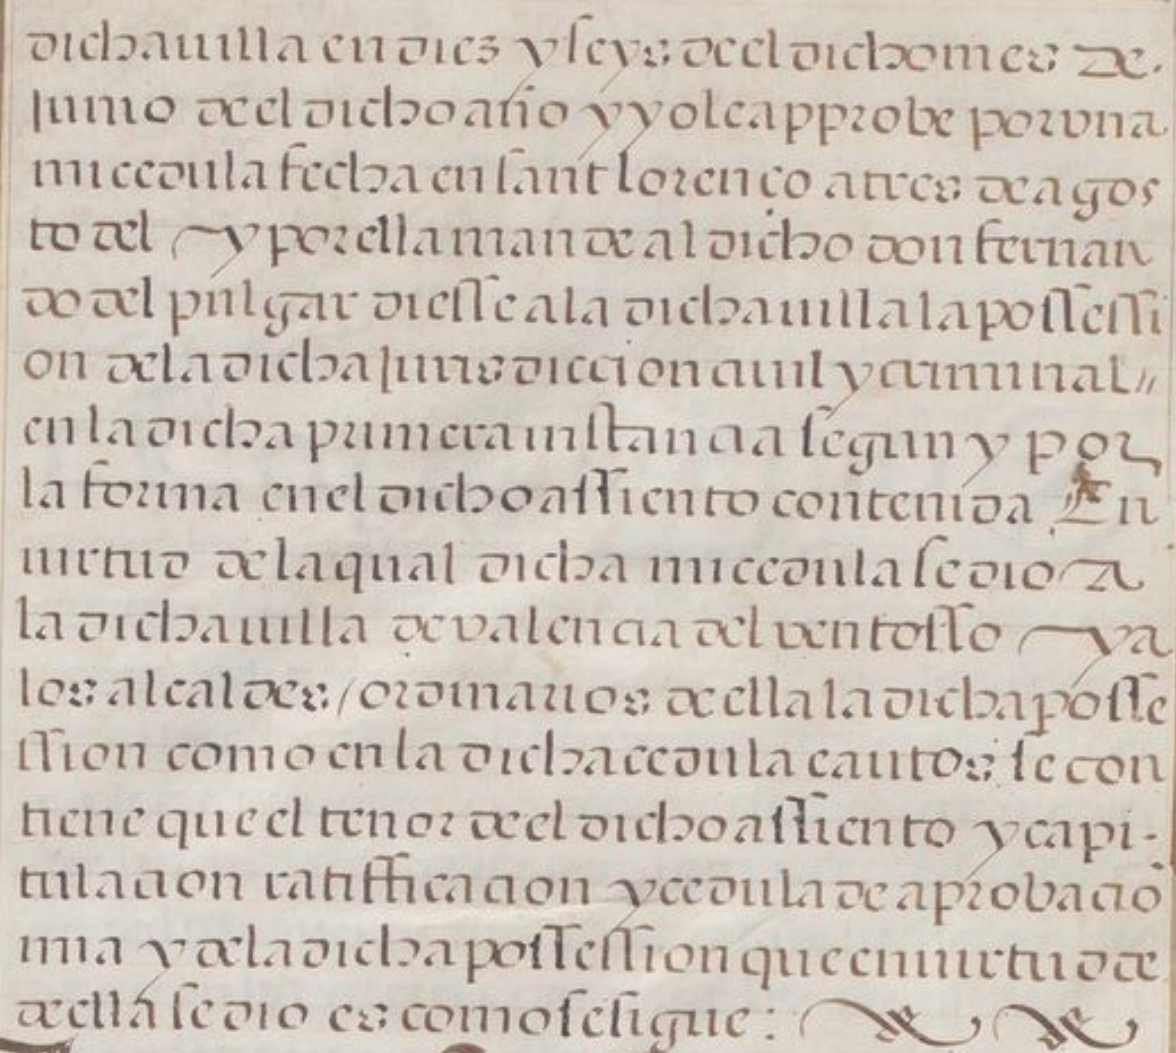 dicha uilla en diez y seys de el dicho mes de.
Junio de el dicho año y yo le approbe por vna
mi cedula fecha en sant lorenço a tres de agos
to del y por ella mande al dicho don fernan
do del pulgar diesse a la dicha uilla la possessi
on de la dicha Jurisdiccion ciuil y criminal //
en la dicha primera instancia segun y por
la forma en el dicho assiento contenida En
uirtud de la qual dicha mi cedula se dio a
la dicha uilla de valencia del ventosso y a
los alcaldes / ordinarios de ella la dicha posse
ssion como en la dicha cedula e autos se con
tiene que el tenor de el dicho assiento y capi-
tulacion ratifficacion y cedula de aprobacio
mia y de la dicha possession que en uirtud de
de ella se dio es como se sigue: